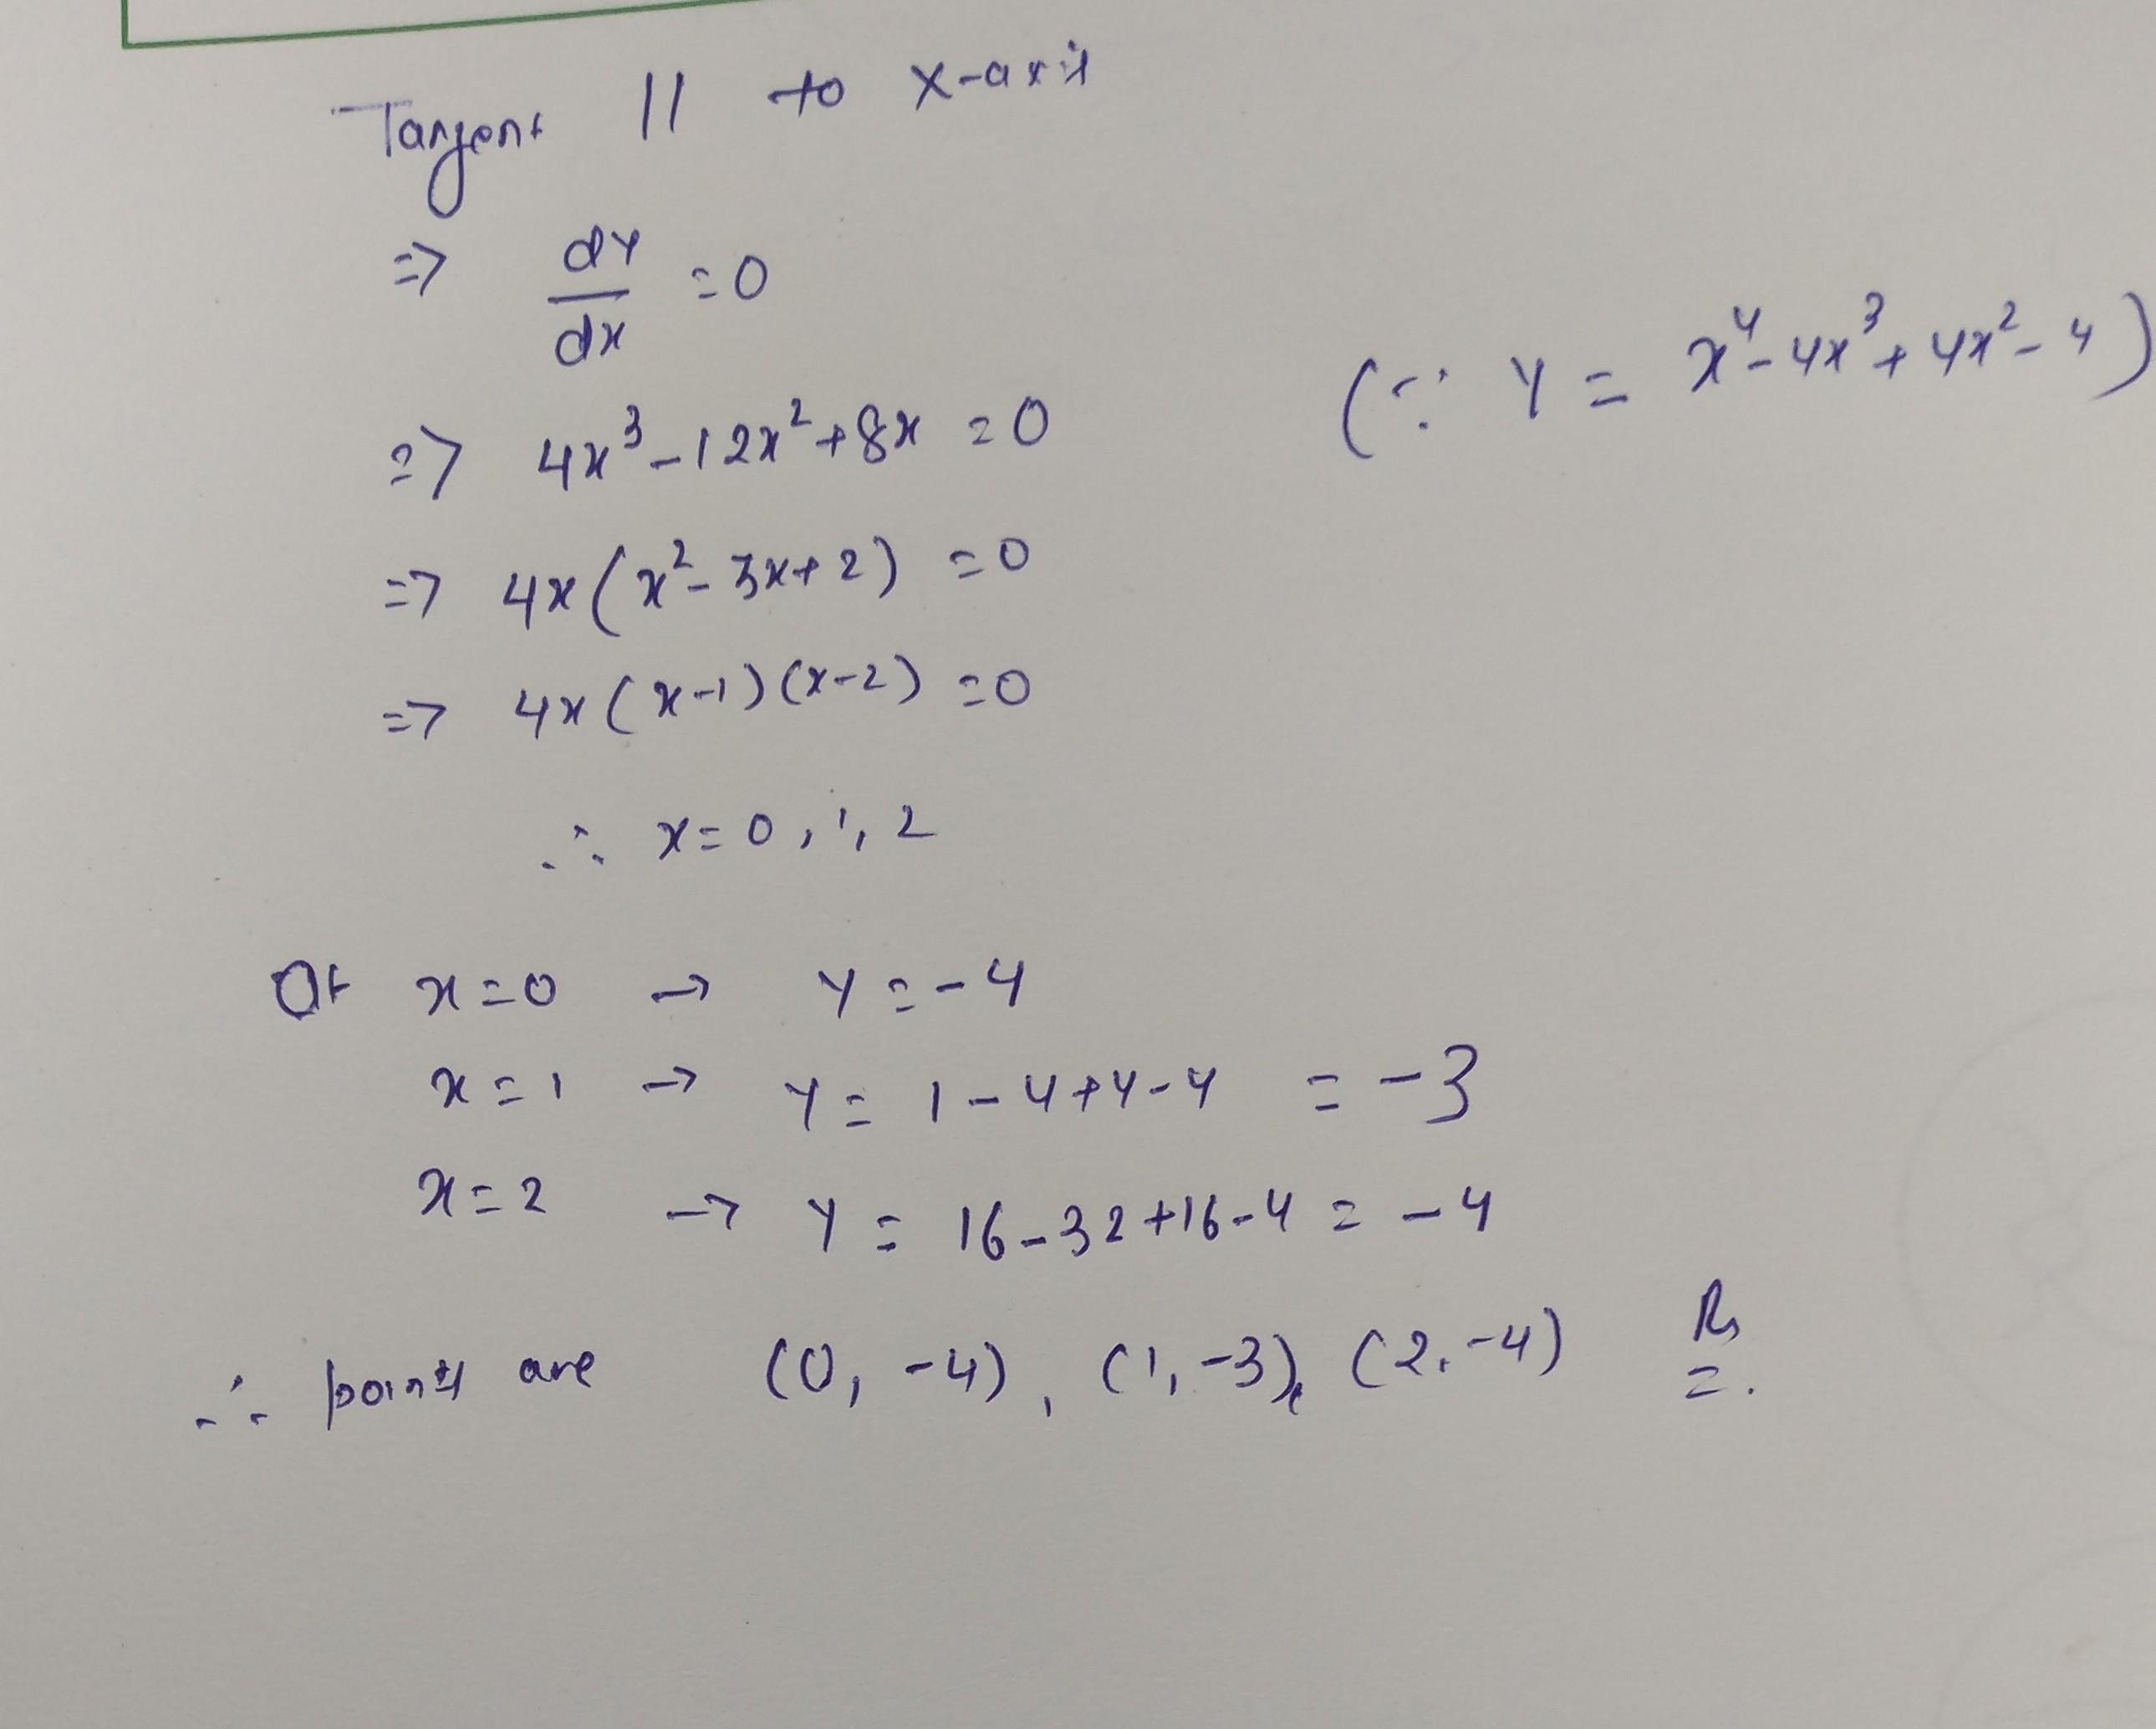 Tangent || to X-axis
=> dy/dx = 0
(∵ y = x⁴ - 4x³ + 4x² - 4)
=> 4x³ - 12x² + 8x = 0
=> 4x(x² - 3x + 2) = 0
=> 4x(x-1)(x-2) = 0
∴ x = 0, 1, 2
at x = 0 → y = -4
x = 1 → y = 1 - 4 + 4 - 4 = -3
x = 2 → y = 16 - 32 + 16 - 4 = -4
∴ points are (0, -4), (1, -3), (2, -4)